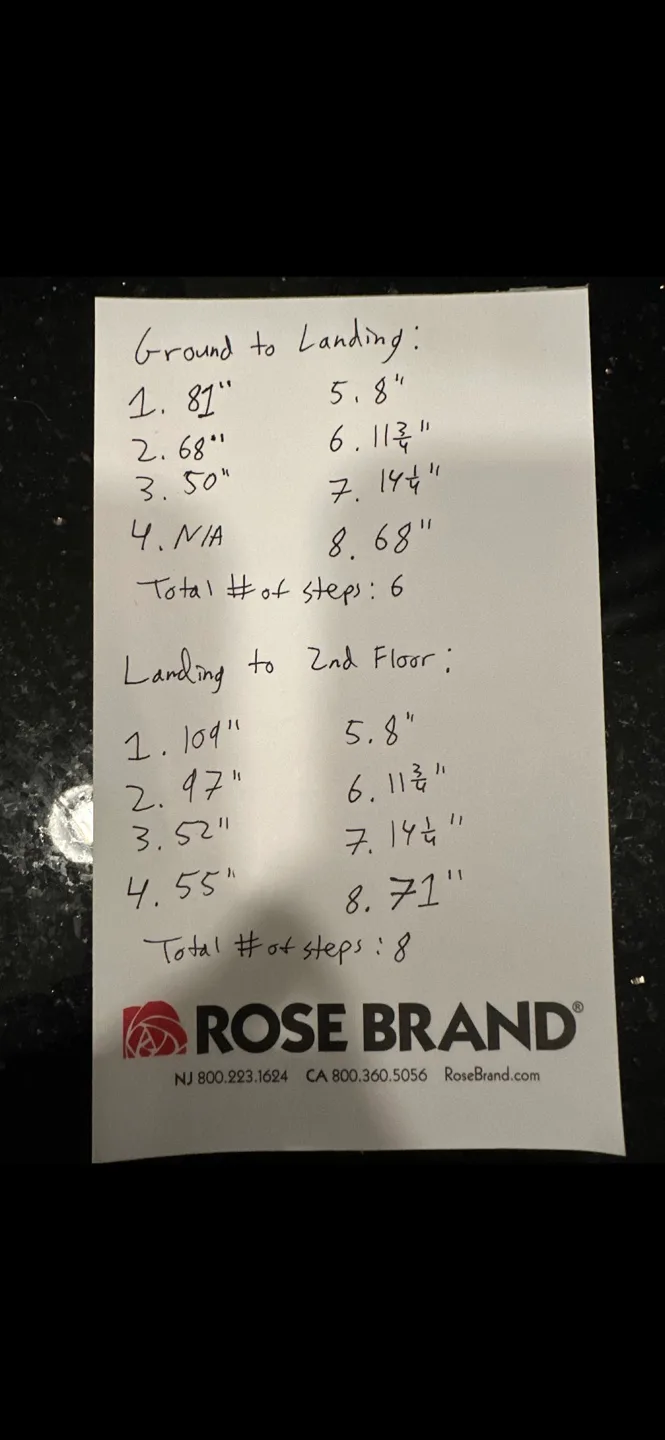 Ground to Landing:
1. 81" 5. 8"
2. 68" 6. 11 3/4"
3. 50" 7. 14 1/4"
4. N/A 8. 68"
Total # of steps: 6
Landing to 2nd Floor:
1. 109" 5. 8"
2. 97" 6. 11 3/4"
3. 52" 7. 14 1/4"
4. 55" 8. 71"
Total # of steps: 8
ROSE BRAND®
NJ 800.223.1624 CA 800.360.5056 RoseBrand.com